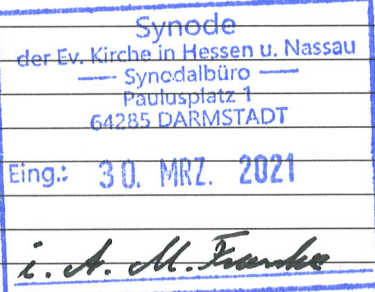 Synode
der Ev. Kirche in Hessen u. Nassau
— Synodalbüro —
Paulusplatz 1
64285 DARMSTADT
Eing.: 30. MRZ. 2021
i. A. M. Franke